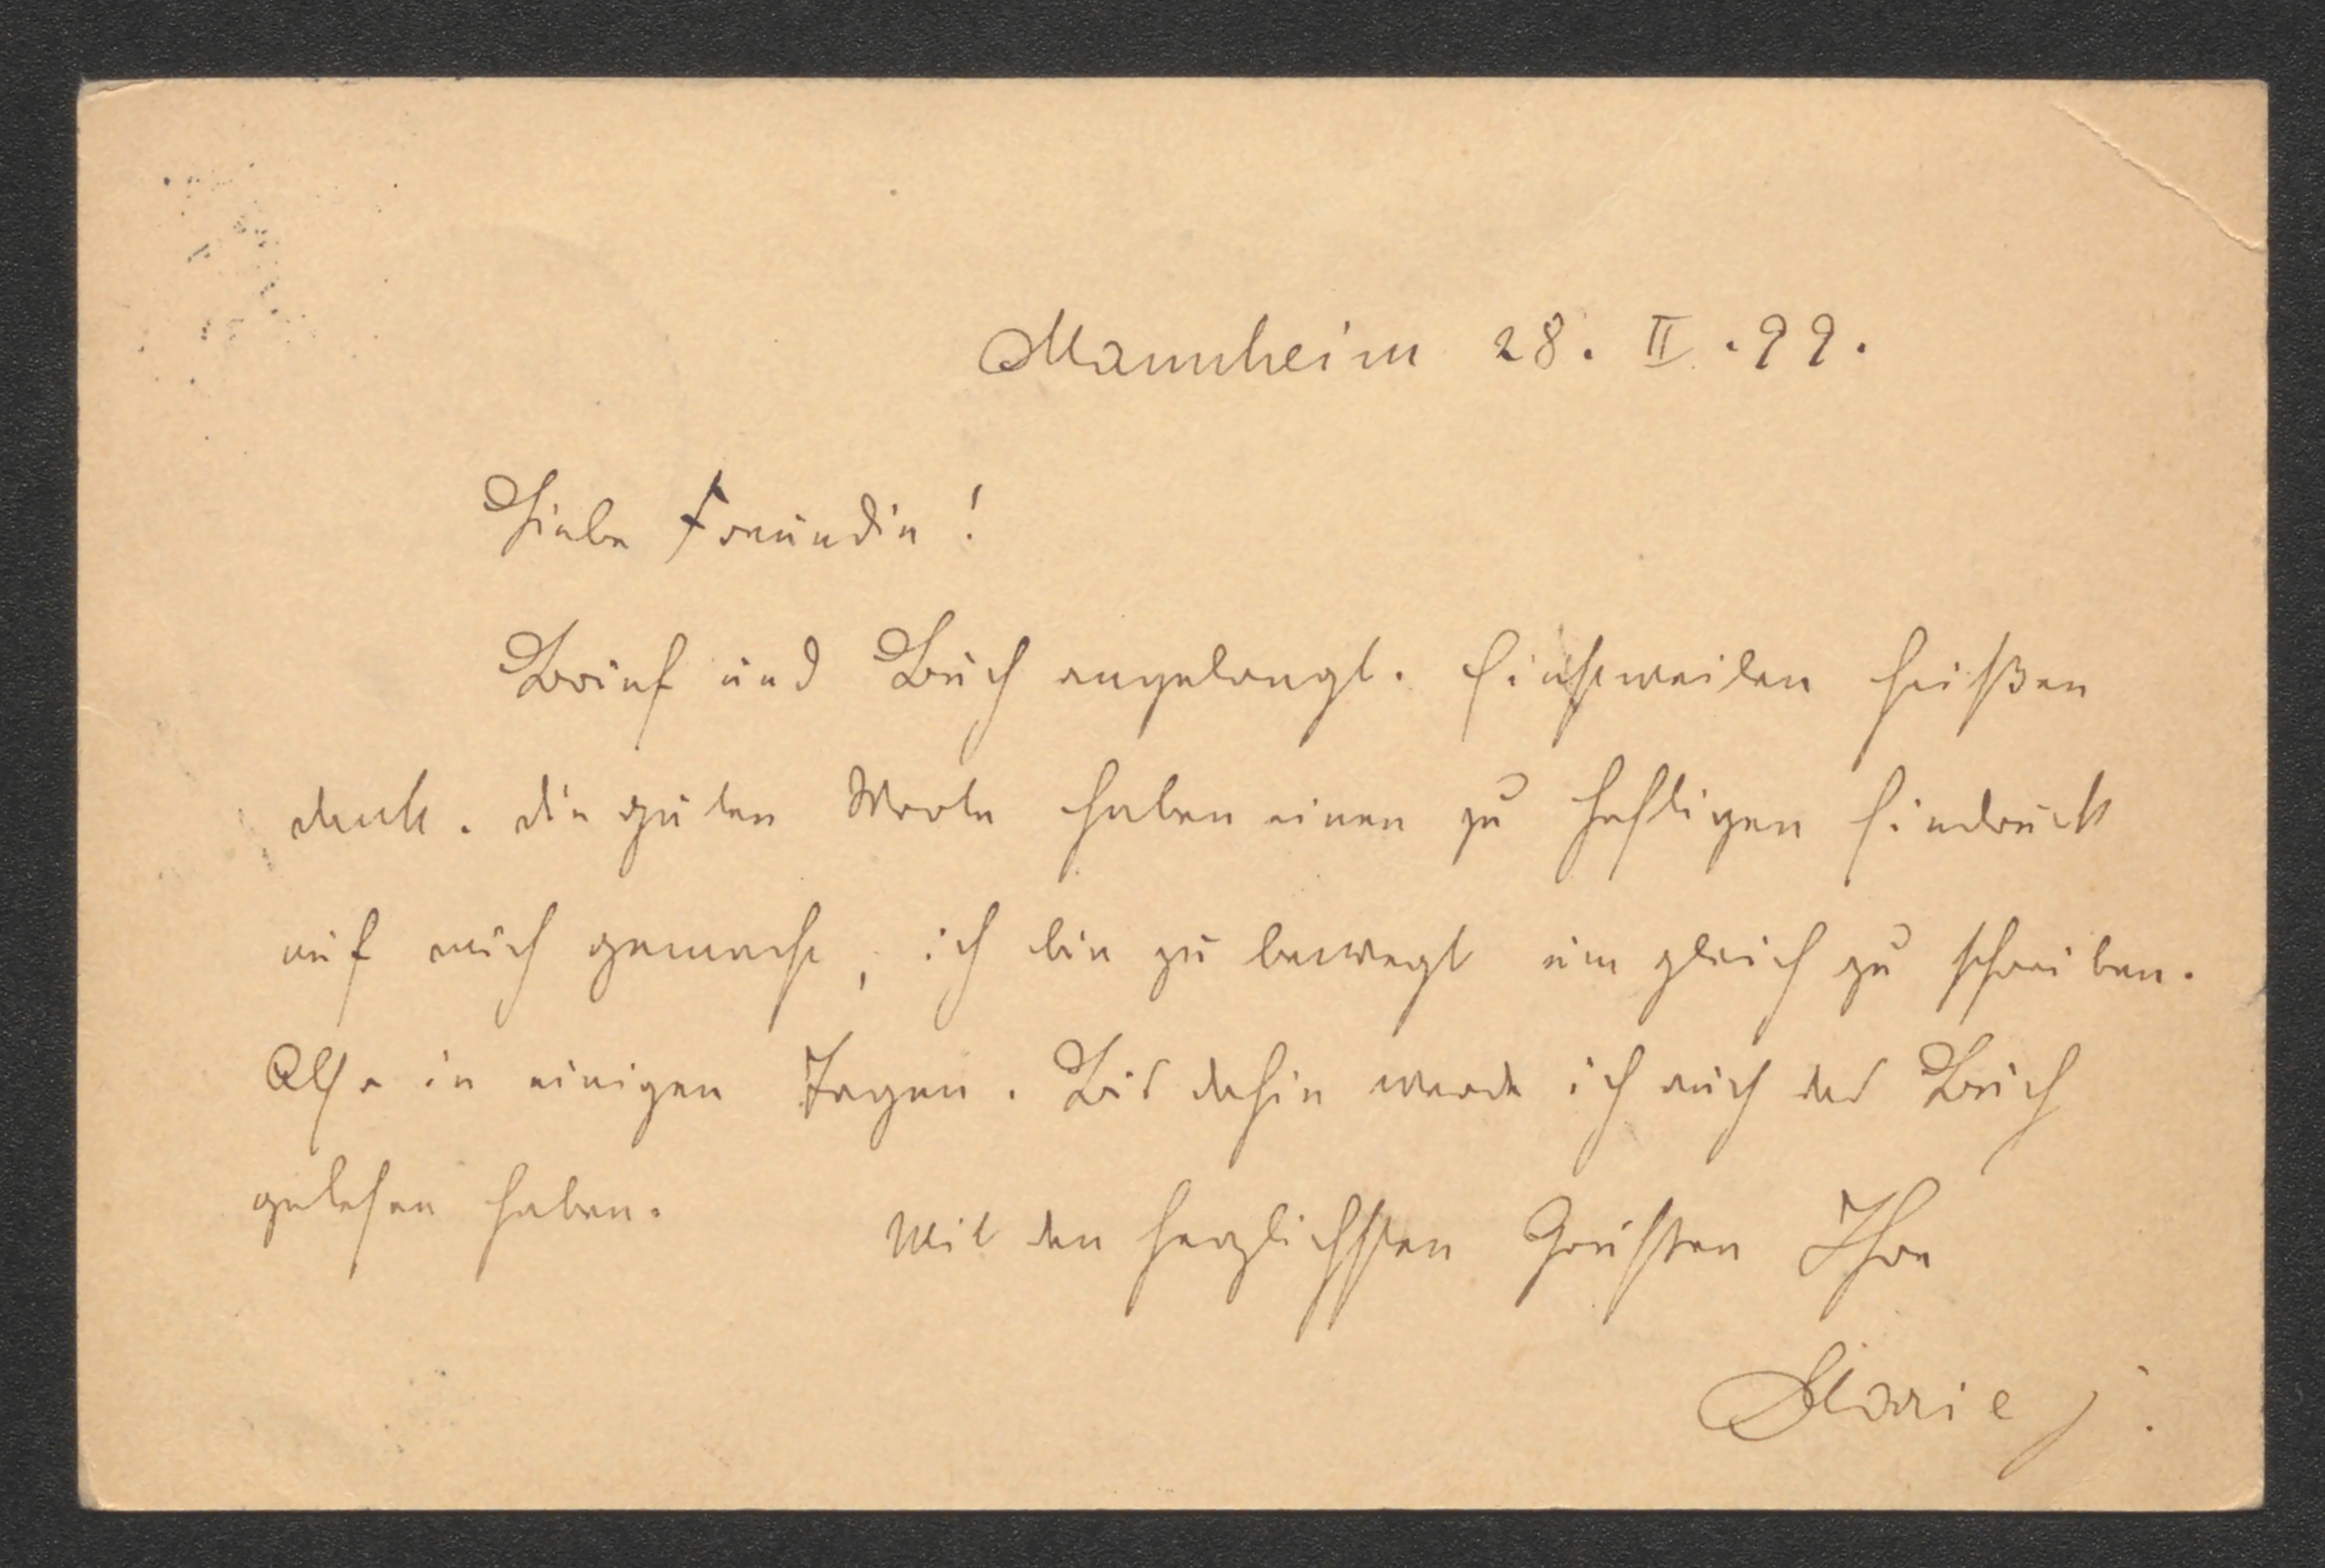 Mannheim 28. II. 99.
Liebe Freundin!
Brief und Buch angelangt. Einstweilen heißen
dank. die guten Worte haben einen zu heftigen Eindruck
auf mich gemacht, ich bin zu bewegt um gleich zu schreiben.
Also in einigen Tagen. Bis dahin werde ich auch das Buch
gelesen haben.
Mit den herzlichsten Grüßen Ihre
Marie J.